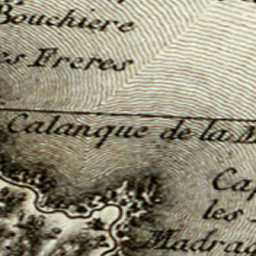 Bouchiere
es Freres
Calanque de la M
Cap
les
Madrag